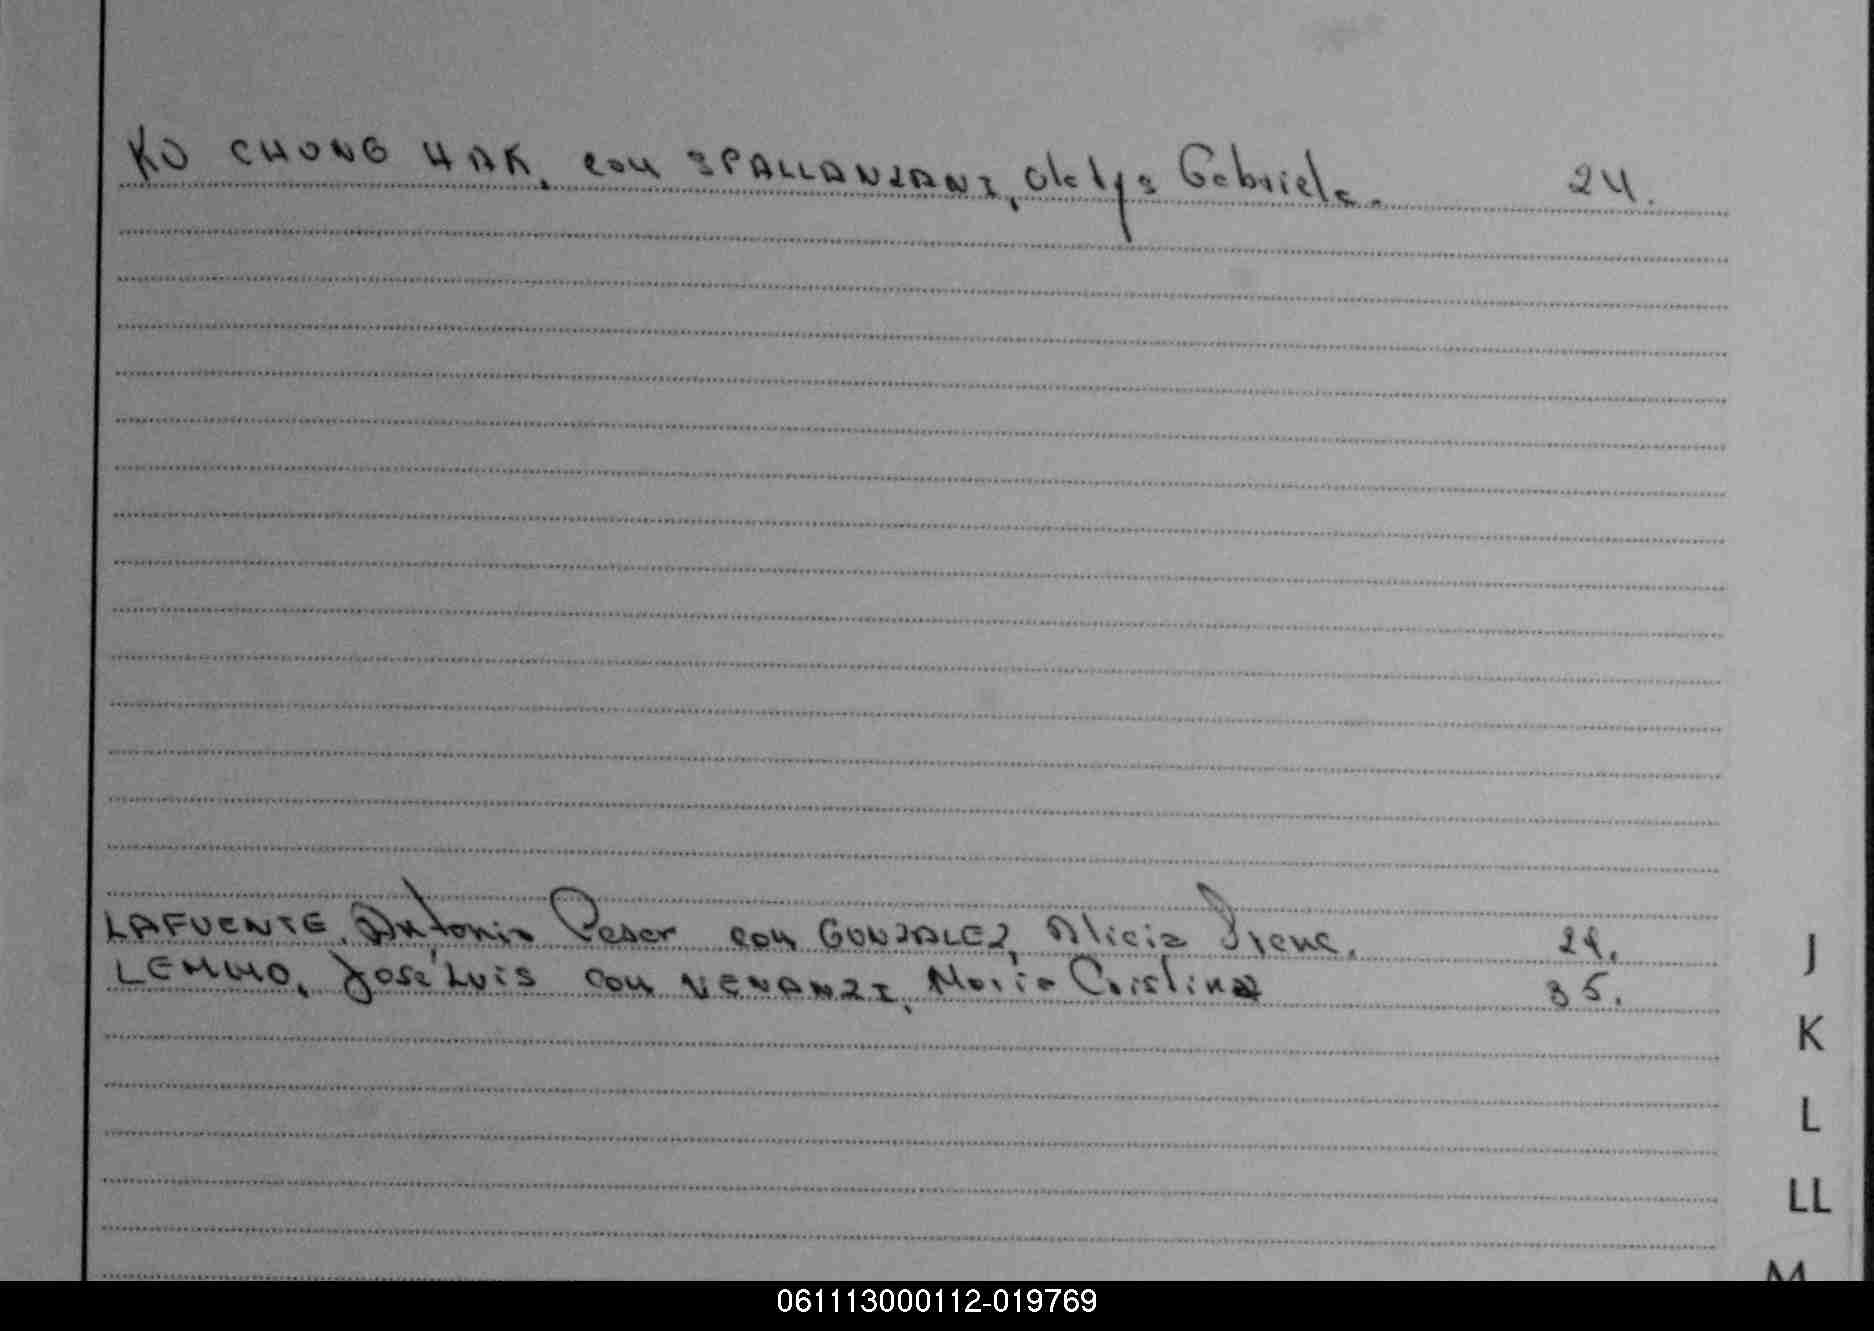 KO CHONG HAK, con SPALLANZANI, Gladys Gabriela. 24.
LAFUENTE, Antonio Cesar con GONZALEZ, Alicia Irene. 29.
LEMMO, José Luis con VENANZI, Maria Cristina 35.
J
K
L
LL
M
061113000112-019769